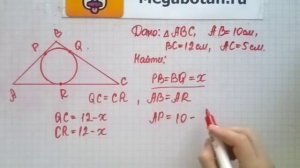 Megabotan.ru
Дано: △ABC, AB=10см,
BC=12см, AC=5см.
Найти:
PB=BQ=x
QC=CR, AB=AR
QC=12-x
CR=12-x
AP=10-
B
P
Q
A
R
C